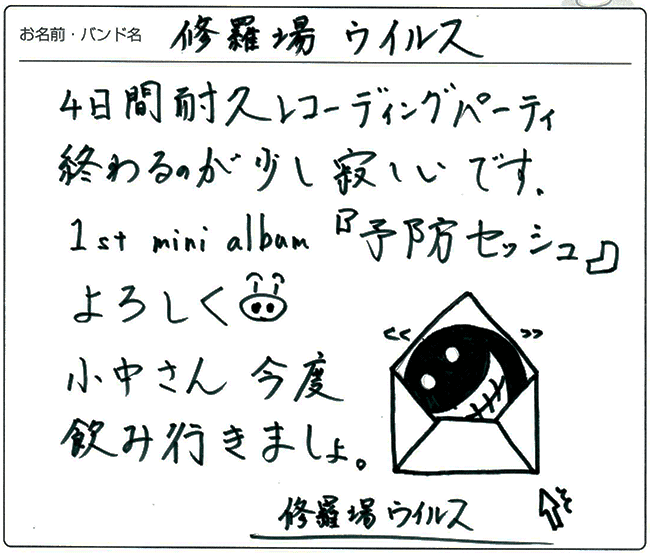 お名前・バンド名 修羅場ウイルス
4日間耐久レコーディングパーティ
終わるのが少し寂しいです.
1st mini album 『予防セッシュ』
よろしく
小中さん 今度
飲み行きましょ。
修羅場ウイルス